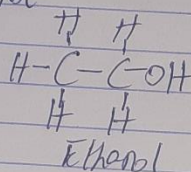 H H
H-C-C-OH
H H
Ethanol